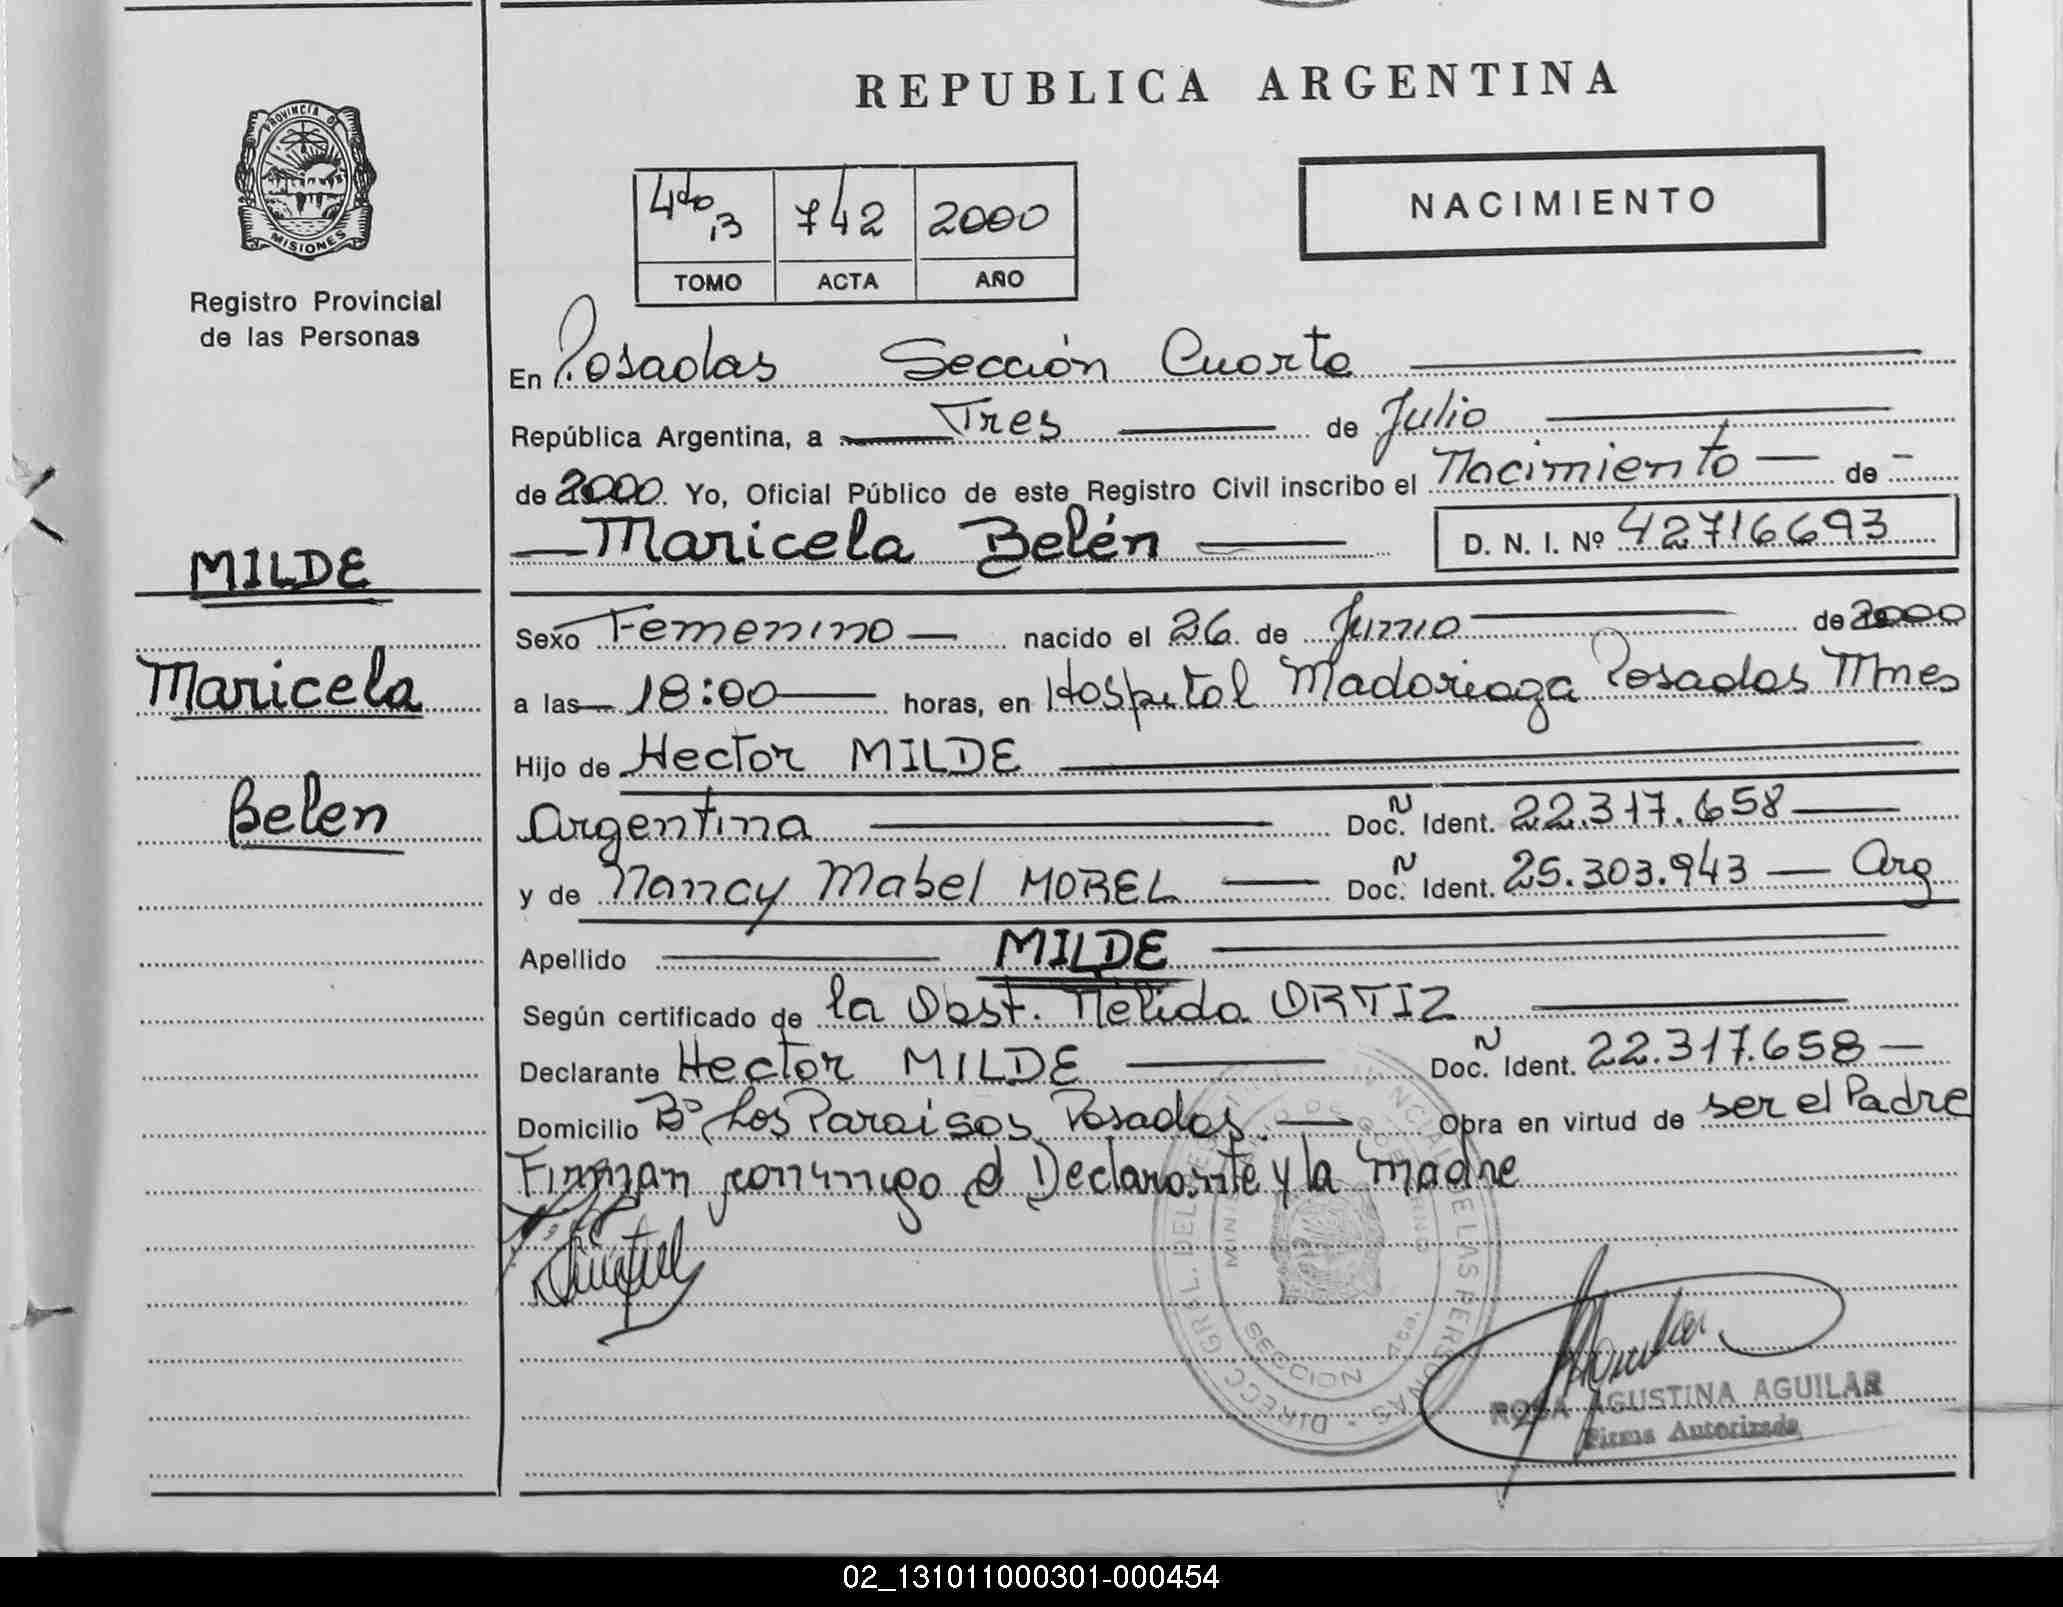 REPUBLICA ARGENTINA
PROVINCIA DE
MISIONES
Registro Provincial
de las Personas
4to 13 742 2000
TOMO ACTA AÑO
NACIMIENTO
En Posadas Sección Cuarta
República Argentina, a Tres de Julio
de 2000 Yo, Oficial Público de este Registro Civil inscribo el Nacimiento de
Maricela Belén D. N. I. Nº 42716693
MILDE
Maricela
Belen
Sexo Femenino nacido el 26 de Junio de 2000
a las 18:00 horas, en Hospital Madariaga Posadas Mnes
Hijo de Hector MILDE
Argentina Doc. N Ident. 22.317.658
y de Nancy Mabel MOREL Doc. N Ident. 25.303.943 Arg
Apellido MILDE
Según certificado de la Obst. Nélida ORTIZ
Declarante Hector MILDE Doc. N Ident. 22.317.658
Domicilio Bº Los Paraisos Posadas. Obra en virtud de ser el Padre
Firman conmigo el Declarante y la Madre
ROSA AGUSTINA AGUILAR
Firma Autorizada
02_131011000301-000454